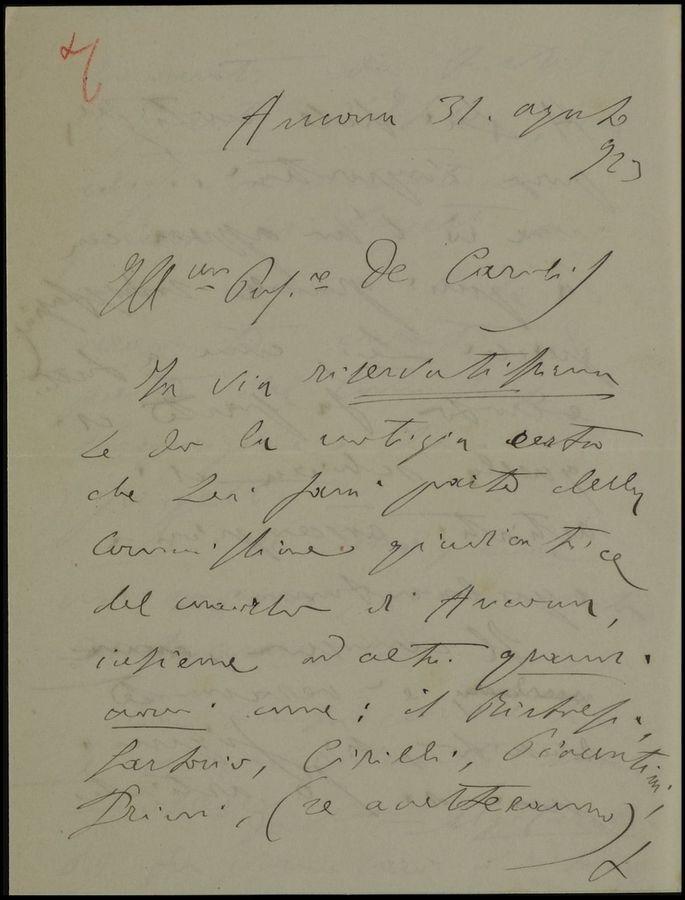 Ancona 31. agosto
923
Ill.mo Prof.re De Carolis
In via riservatissima
Le do la notizia certa
che Lei farà parte della
Commissione giudicatrice
del concorso di Ancona,
insieme ad altri grandi
nomi come: il Bistolfi,
Sartorio, Cirilli, Piacentini,
Brizzi, (se accetteranno)